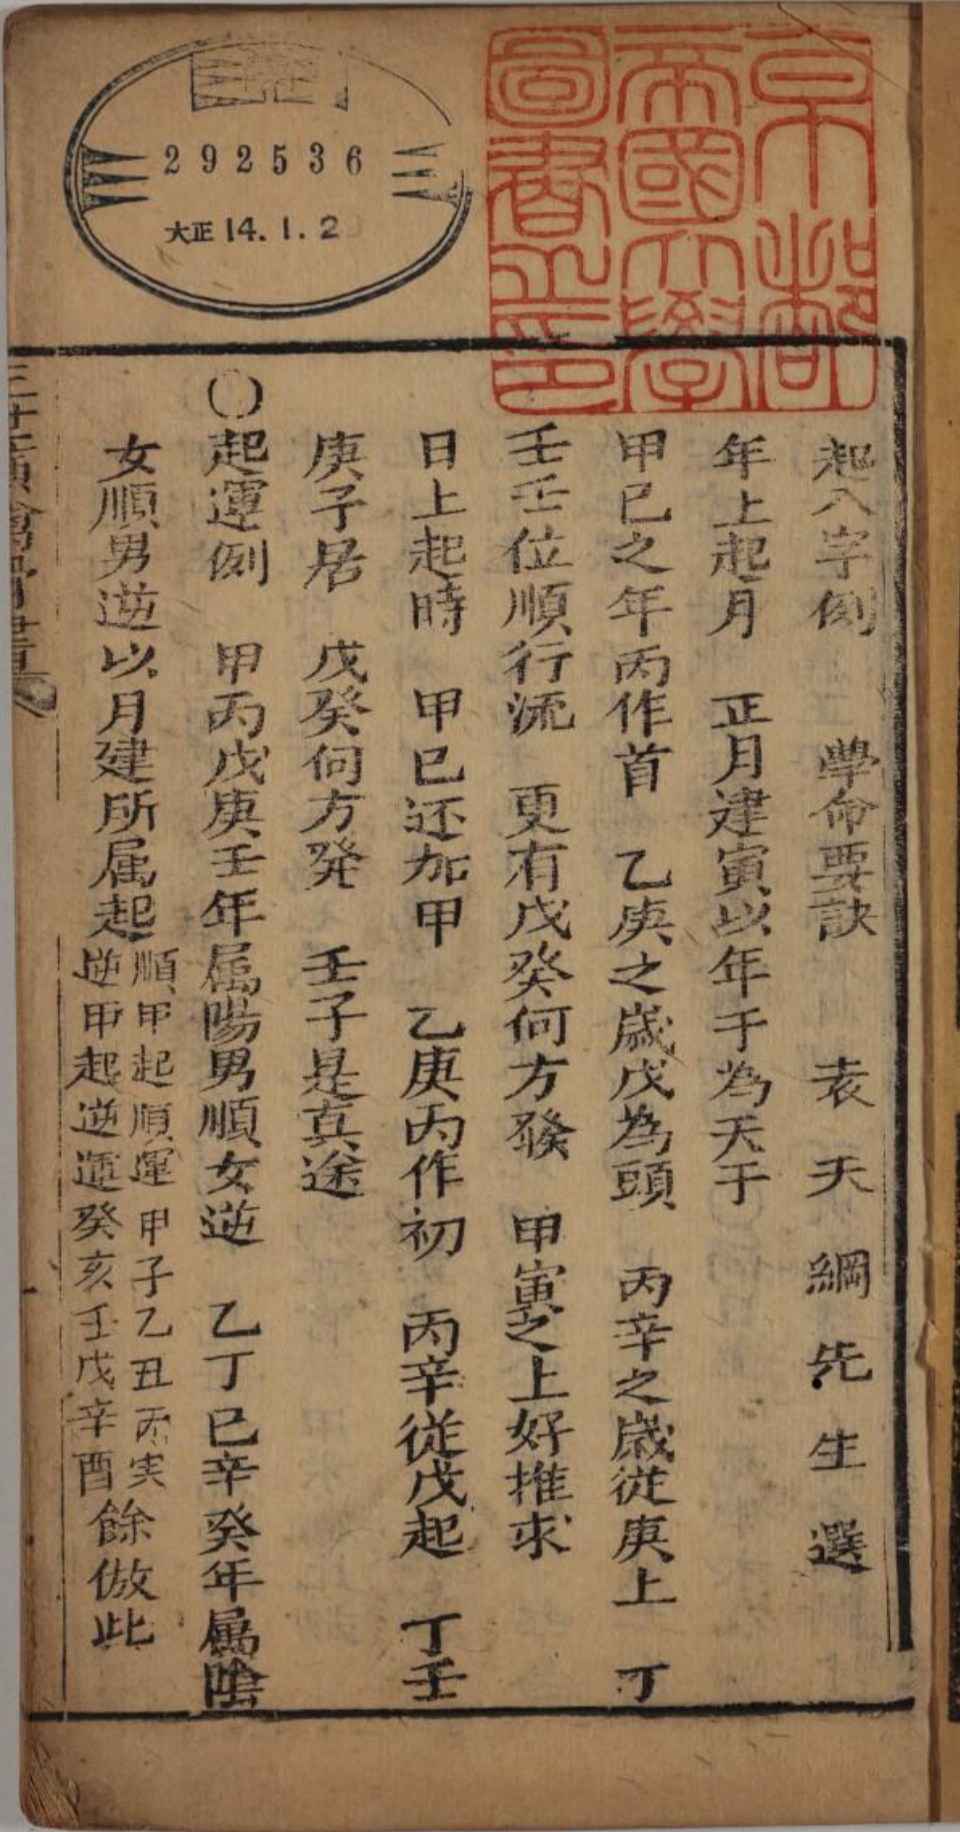 京都
帝國大學
圖書之印
292536
大正14.1.2
起八字例　學命要訣　袁天綱先生選
年上起月　正月建寅以年干為天干
甲己之年丙作首　乙庚之歲戊為頭　丙辛之歲從庚上　丁
壬壬位順行流　更有戊癸何方發　甲寅之上好推求
日上起時　甲己还加甲　乙庚丙作初　丙辛從戊起　丁壬
庚子居　戊癸何方発　壬子是真途
〇起運例　甲丙戊庚壬年属陽男順女逆　乙丁己辛癸年属陰
女順男逆以月建所属起
順甲起順運　甲子乙丑丙寅
逆甲起逆運癸亥壬戌辛酉
餘倣此